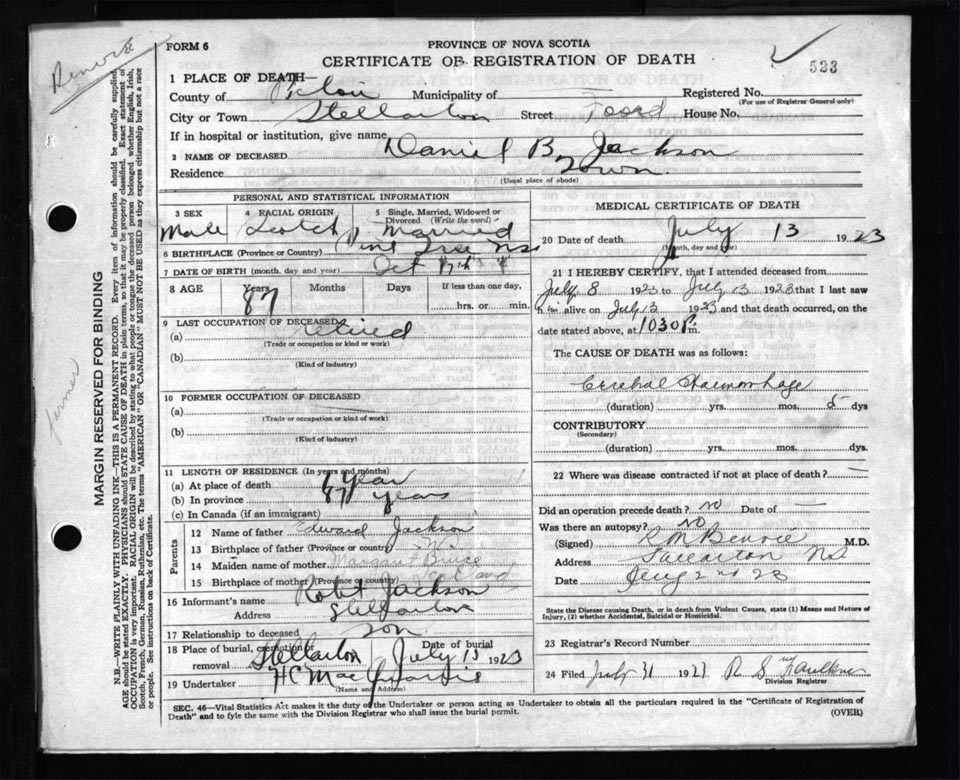 Benvie
FORM 6
PROVINCE OF NOVA SCOTIA
CERTIFICATE OF REGISTRATION OF DEATH
533
1 PLACE OF DEATH—
County of Pictou Municipality of — Registered No.
(For use of Registrar General only)
City or Town Stellarton Street Foord House No.
If in hospital or institution, give name
2 NAME OF DECEASED Daniel B. Jackson
Residence Town.
(Usual place of abode)
PERSONAL AND STATISTICAL INFORMATION
3 SEX 4 RACIAL ORIGIN 5 Single, Married, Widowed or Divorced (Write the word)
Male Scotch Married
6 BIRTHPLACE (Province or Country) Pine Tree NS
7 DATE OF BIRTH (month, day and year) Oct
8 AGE Years Months Days If less than one day,
87 hrs. or min.
9 LAST OCCUPATION OF DECEASED
(a) retired
(Trade or occupation or kind or work)
(b)
(Kind of industry)
10 FORMER OCCUPATION OF DECEASED
(a)
(Trade or occupation or kind of work)
(b)
(Kind of Industry)
11 LENGTH OF RESIDENCE (In years and months)
(a) At place of death 1 year
(b) In province 87 years
(c) In Canada (if an immigrant)
Parents
12 Name of father Edward Jackson
13 Birthplace of father (Province or country) NS
14 Maiden name of mother Margaret Bruce
15 Birthplace of mother (Province or country)
16 Informant's name Robt Jackson
Address Stellarton
17 Relationship to deceased son
18 Place of burial, cremation or removal Stellarton Date of burial July 15 1923
19 Undertaker H C MacQuarrie
(Name and Address)
MEDICAL CERTIFICATE OF DEATH
20 Date of death July 13 1923
(Month, day and year)
21 I HEREBY CERTIFY, that I attended deceased from
July 8 1923 to July 13 1923 that I last saw
h im alive on July 13 1923 and that death occurred, on the
date stated above, at 1030 P. m.
The CAUSE OF DEATH was as follows:
Cerebral Haemorrhage
(duration) yrs. mos. 5 dys
CONTRIBUTORY
(Secondary)
(duration) yrs. mos. dys.
22 Where was disease contracted if not at place of death? —
Did an operation precede death? no Date of —
Was there an autopsy? NO
(Signed) R M Benvie M.D.
Address Stellarton NS
Date Aug 2nd 23
State the Disease causing Death, or in death from Violent Causes, state (1) Means and Nature of
Injury, (2) whether Accidental, Suicidal or Homicidal.
23 Registrar's Record Number
24 Filed July 31 1923 R S
Division Registrar
SEC. 46—Vital Statistics Act makes it the duty of the Undertaker or person acting as Undertaker to obtain all the particulars required in the "Certificate of Registration of
Death" and to fyle the same with the Division Registrar who shall issue the burial permit.
(OVER)
MARGIN RESERVED FOR BINDING
farmer
N.B.—WRITE PLAINLY WITH UNFADING INK—THIS IS A PERMANENT RECORD. Every item of information should be carefully supplied.
AGE should be stated EXACTLY. PHYSICIANS should STATE CAUSE OF DEATH in plain terms, so that it may be properly classified. Exact statement of
OCCUPATION is very important. RACIAL ORIGIN will be described by stating to what people or tongue the deceased person belonged whether English, Irish,
Scotch, French, German, Russian, Ruthenian, etc. The terms "AMERICAN" OR "CANADIAN" MUST NOT BE USED as they express citizenship but not a race
or people. See instructions on back of Certificate.